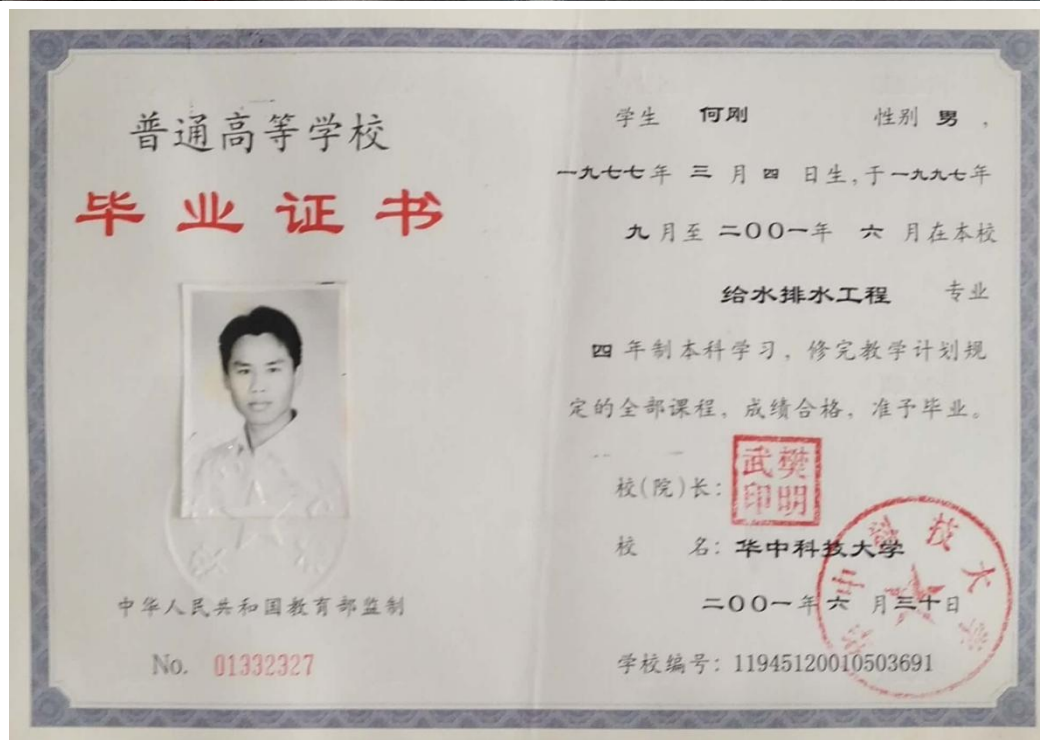 普通高等学校
毕业证书
中华人民共和国教育部监制
No. 01332327
学生 何刚 性别 男，
一九七七年 三 月 四 日生，于一九九七年
九 月至 二〇〇一年 六 月在本校
给水排水工程 专业
四 年制本科学习，修完教学计划规
定的全部课程，成绩合格，准予毕业。
校(院)长：
樊明武印
校 名：华中科技大学
二〇〇一年六 月三十日
学校编号：11945120010503691
华中科技大学